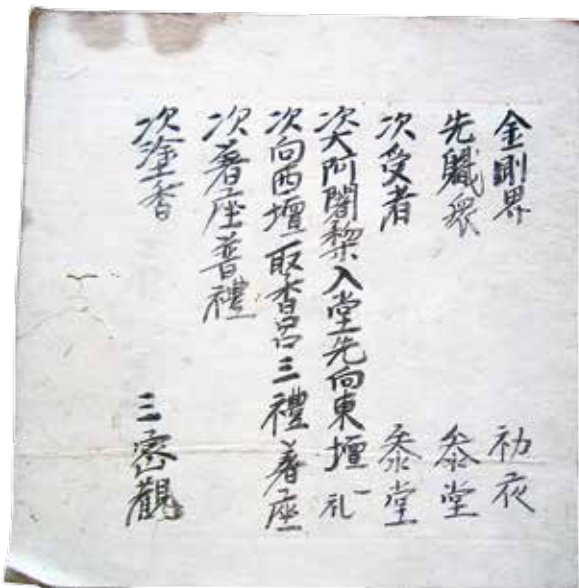 金剛界 初夜
先職衆 参堂
次受者 参堂
次大阿闍梨入堂先向東壇一礼
次向西壇取香呂三禮著座
次著座普禮
次塗香 三密觀